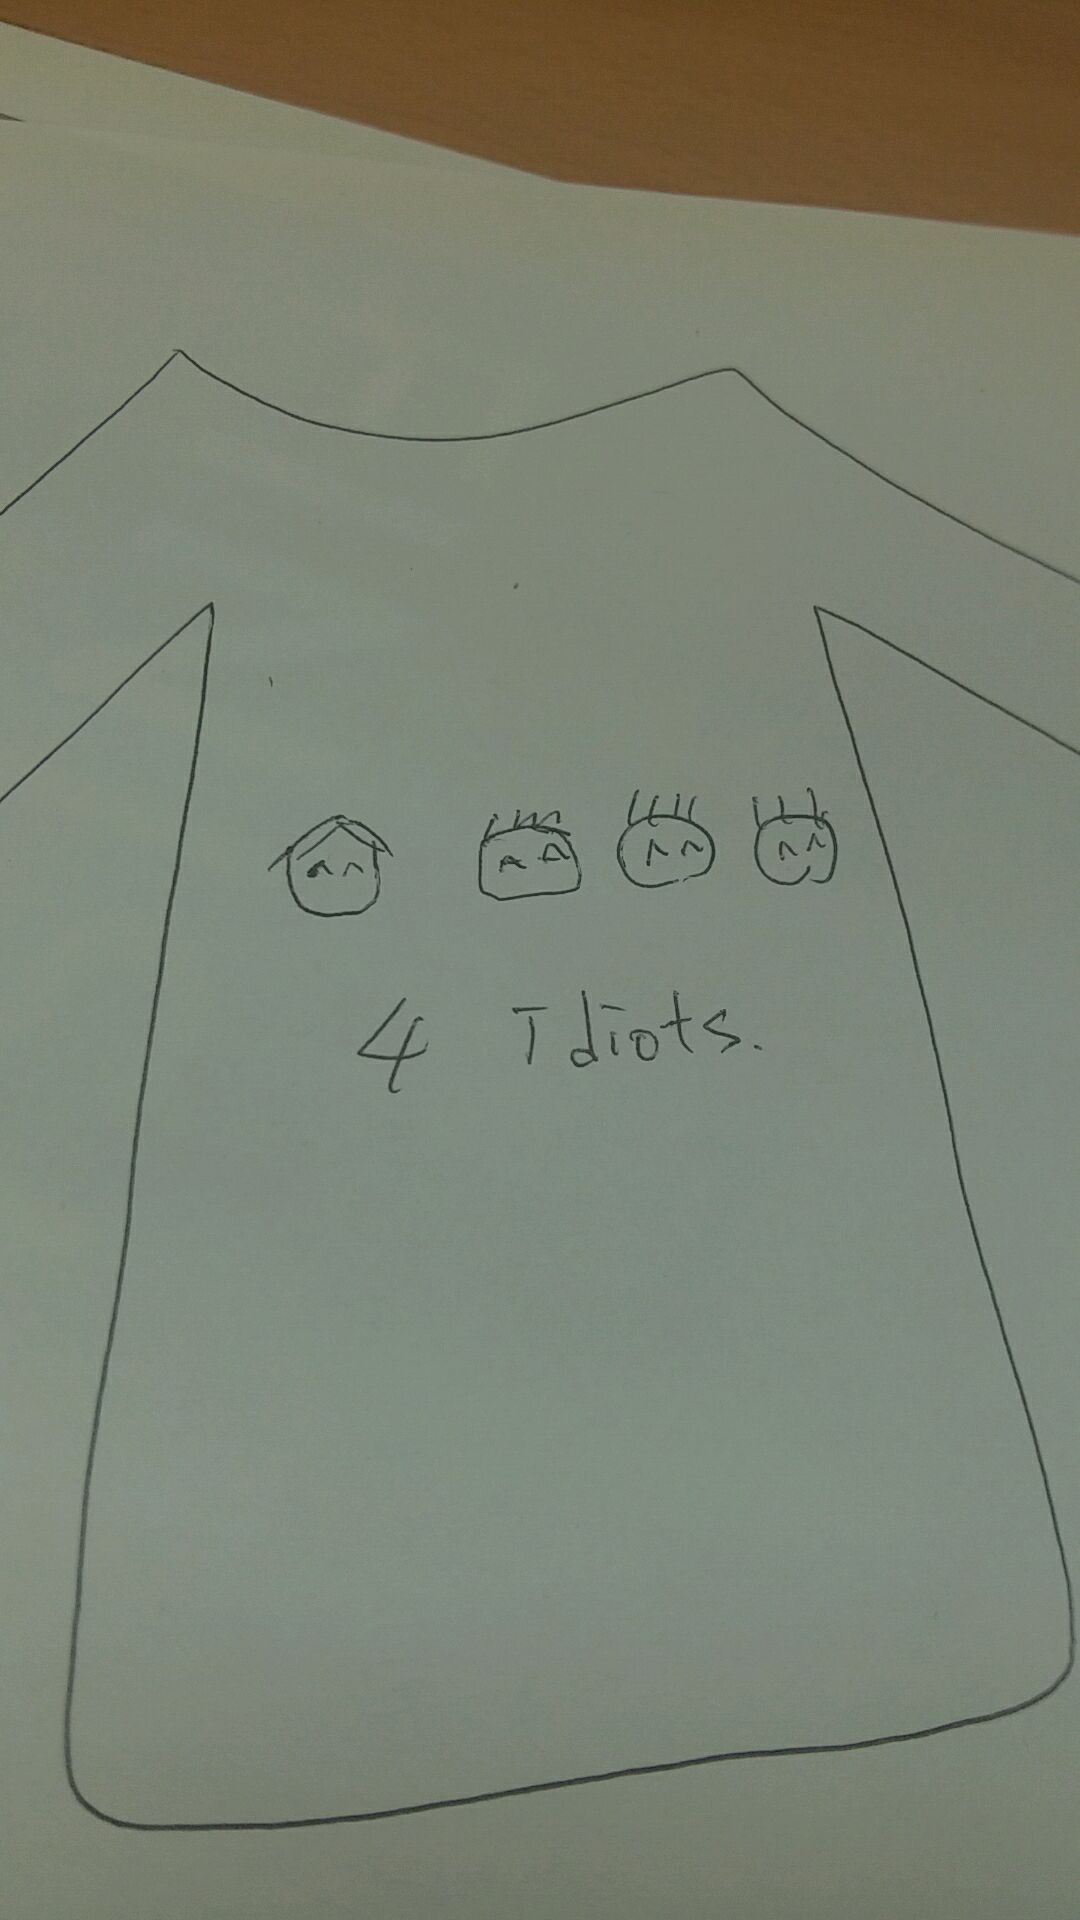 4 Idiots.